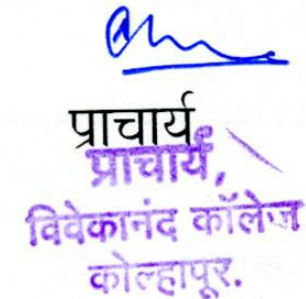 प्राचार्य
प्राचार्य,
विवेकानंद कॉलेज
कोल्हापूर.